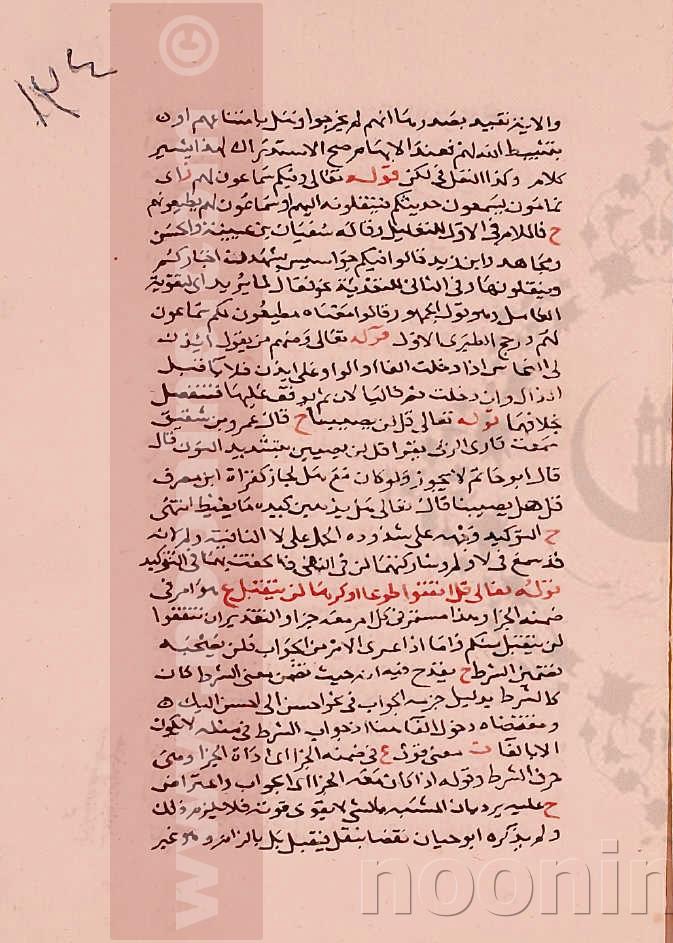 ١٣٤
والا لزم تقييد بصدر ما انهم لم يخرجوا وهل يامتناعهم او ن
بتثبيط الله لهم فعند الابهام صح الاستدراك لهذا يشير
كلام وكذا النقل في لكن قوله تعالى وفيكم سماعون لهم زاى
نمامون يسمعون حديثكم فينقلونه اليهم او سماعون لهم يطيعونهم
ح فاللام في الاول للتعليل وقاله سفيان بن عيينة والحسن
ومجاهد وابن زيد قالوا فيكم جواسيس يسمعون اخباركم
وينقلونها وفي الثاني للتقدية نحو فعال لما يريد اى لتقوية
العامل وهو قول الجمهور قالوا معناه مطيعون لكم سماعون
لهم ورجح الطبرى الاول قوله تعالى ومنهم من يقول ايذن
لى النحاس اذا دخلت الفا او الواو على ايذن فلا يا قبل
الذال وان دخلت ثم فاليا لان ثم يوقف عليها فتنفصل
بخلافهما قوله تعالى قل لن يصيبنا ح قال عمرو بن شقيق
سمعت قارى الرى يقرا قل لن يصيبن بتشديد النون قال
قال ابو حاتم لا يجوز ولو كان مع هل لجاز كقراة ابن مصرف
قل هل يصيبنا قال تعالى هل يذهبن كيده ما يغيظ انتهى
ح التوكيد وجهه على شذوده الحمل على لا النافية ولم لانه
قد سمع في لا ولم وشاركتهما لن في النفى فالحقت بهما في التوكيد
قوله تعالى قل انفقوا طوعا او كرها لن يتقبل ع هو امر في
ضمنه الجزا وهذا مستمر في كل امر معه جزا والتقدير ان تنفقوا
لن يتقبل منكم واما اذا عرى الامر من الجواب فلن يصحبه
تضمين الشرط ح يقدح فيه انه حيث تضمن معنى الشرط كان
كالشرط بدليل جزمه الجواب في نحو احسن الى احسن اليك
ومقتضاه دخول الفا هنا اذ جواب الشرط في مثله لا يكون
الا بالفا ت معنى قول ع في ضمنه الجزا اى اداة الجزا ومعنى
حرف الشرط وقوله اذا كان معه الجزا اى الجواب واعتراض
ح عليه يرد بان المشبه بالشى لا يقوى قوته فلا يلزم ذلك
ولم يذكره ابو حيان نقضا بنقل فيقبل بل بالزام وهو غير
www.
©
noonin